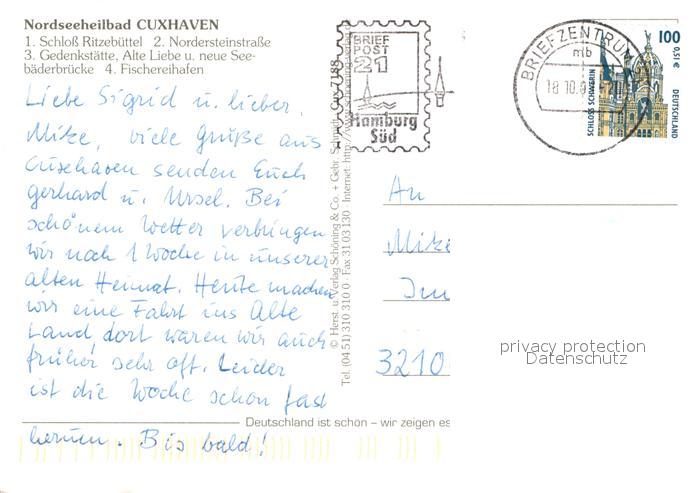 Nordseeheilbad CUXHAVEN
1. Schloß Ritzebüttel 2. Nordersteinstraße
3. Gedenkstätte, Alte Liebe u. neue See-
bäderbrücke 4. Fischereihafen
Liebe Sigrid u. lieber
Mike, viele Grüße aus
Cuxhaven senden Euch
Gerhard u. Ursel. Bei
schönem Wetter verbringen
wir noch 1 Woche in unserer
alten Heimat. Heute machen
wir eine Fahrt ins Alte
Land, dort waren wir auch
früher sehr oft. Leider
ist die Woche schon fast
herum. Bis bald!
© Herst. u. Verlag Schöning & Co. + Gebr. Schmidt
Tel. (04 51) 310 310 0 · Fax 31 03 130 · Internet:
BRIEF
POST
21
Hamburg
Süd
BRIEFZENTRUM
mb
18.10.
100
0,51 €
SCHLOSS SCHWERIN
DEUTSCHLAND
An
Mike
Im
3210
privacy protection
Datenschutz
Deutschland ist schön – wir zeigen es